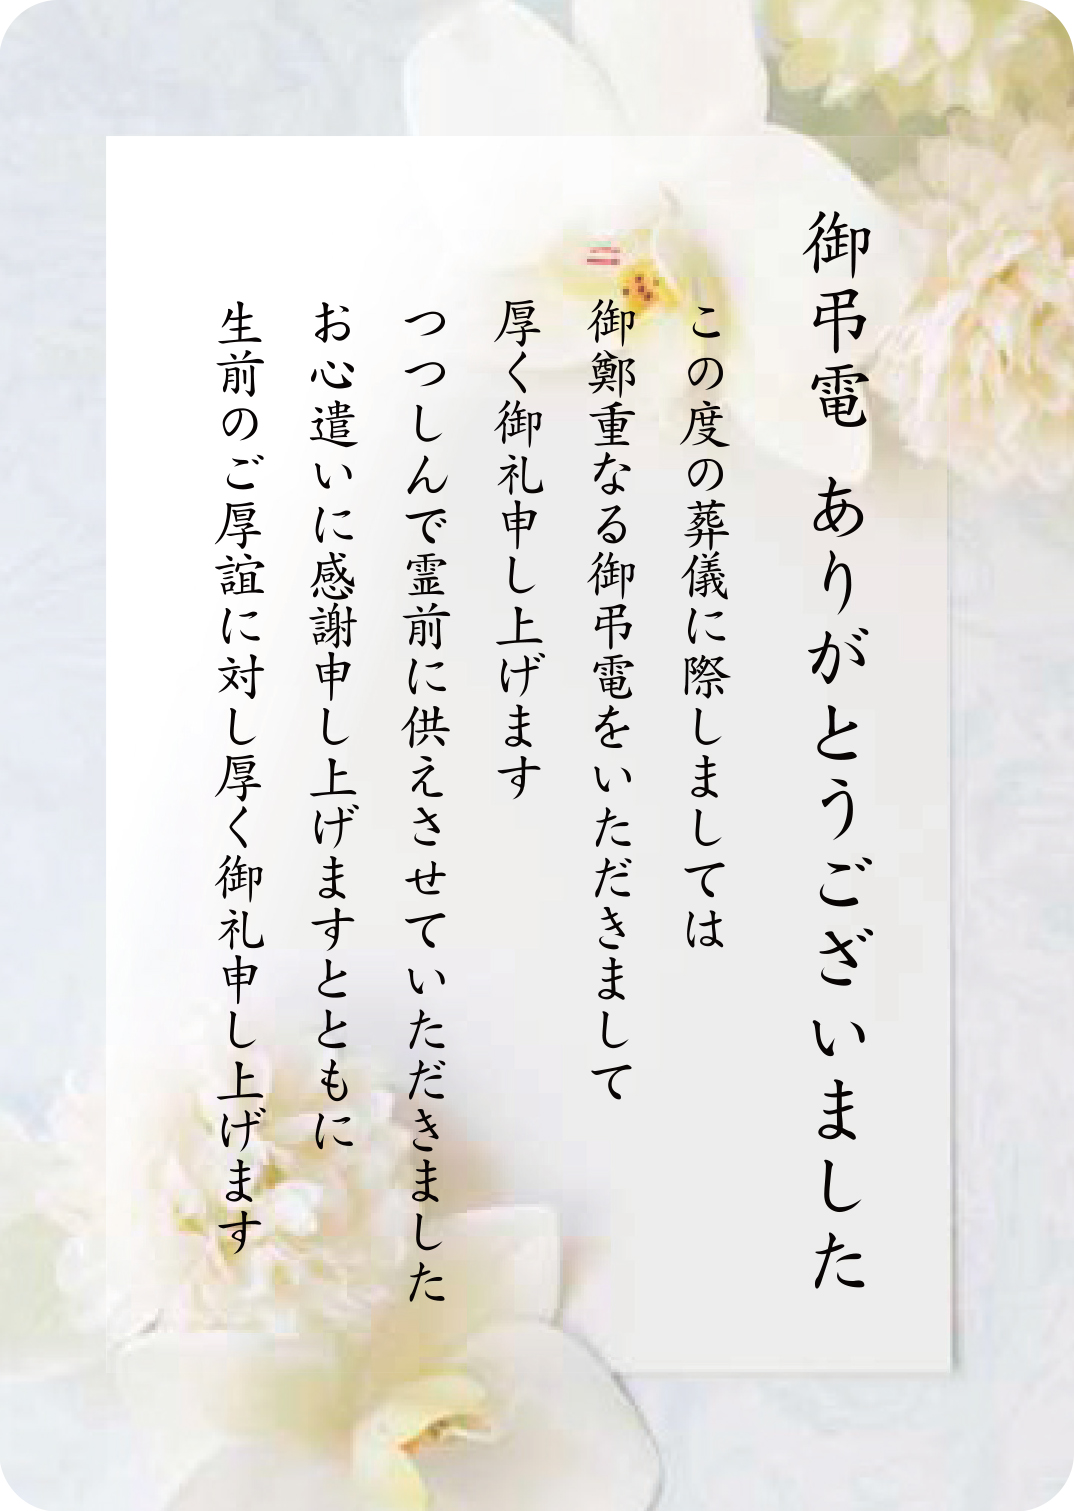 御弔電　ありがとうございました
この度の葬儀に際しましては
御鄭重なる御弔電をいただきまして
厚く御礼申し上げます
つつしんで霊前に供えさせていただきました
お心遣いに感謝申し上げますとともに
生前のご厚誼に対し厚く御礼申し上げます